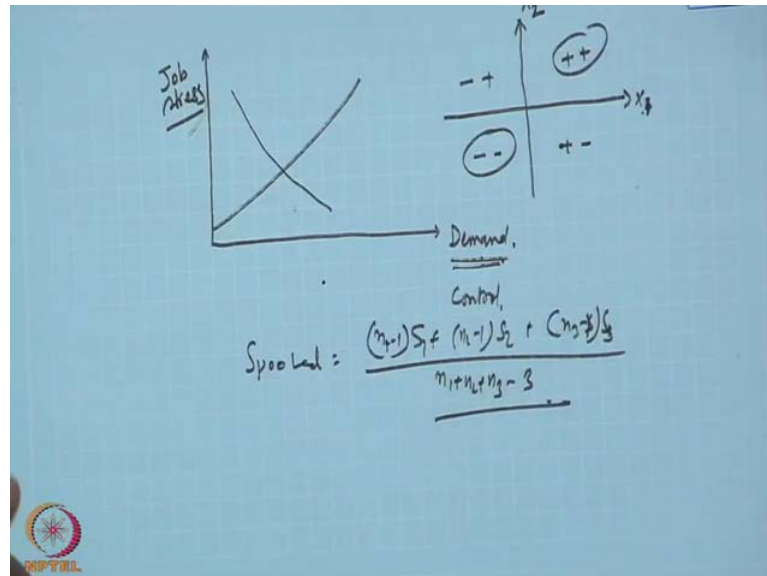 Job
stress
x2
- +
+ +
x1
- -
+ -
Demand.
Control.
Spooled = (n1-1)S1 + (n2-1)S2 + (n3-1)S3
n1+n2+n3-3
NPTEL